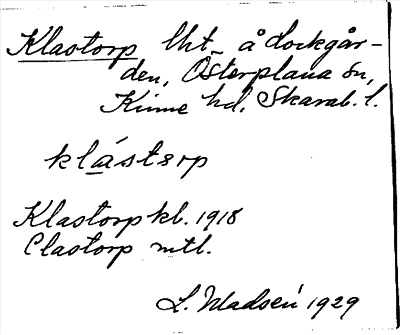 Klastorp lht å Lockgår-
den, Österplana sn,
Kinne hd, Skarab. l.
klástorp
Klastorp kb. 1918
Clastorp mtl.
L. Madsén 1929